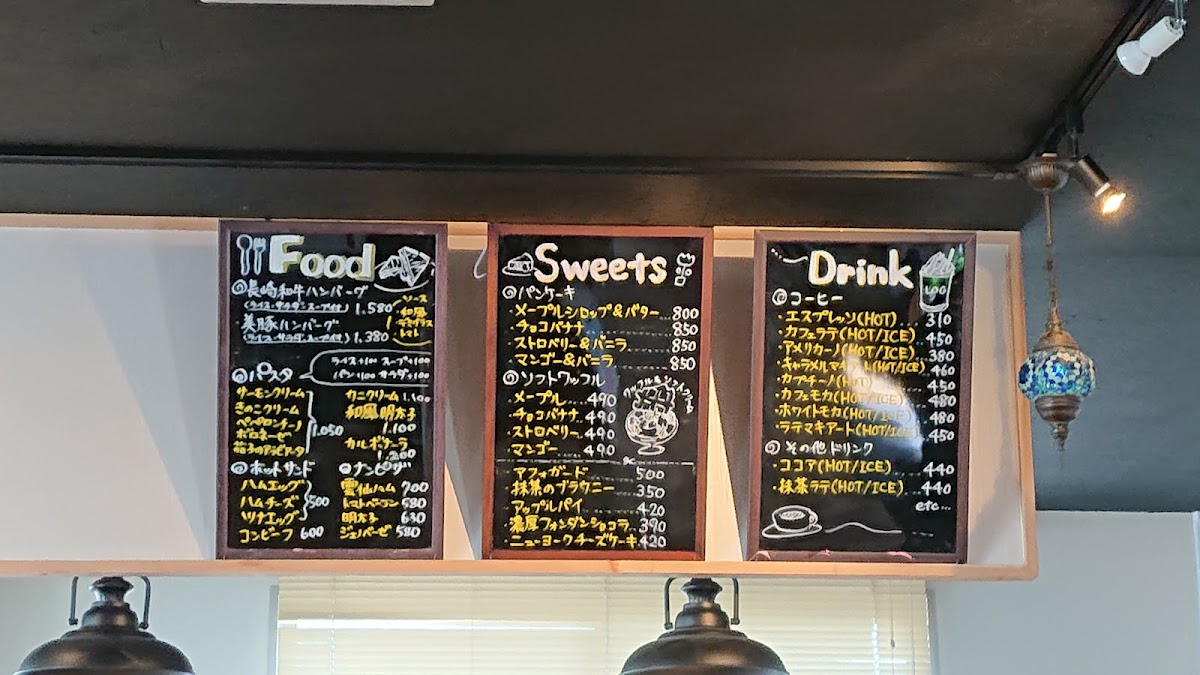 Food
長崎和牛ハンバーグ
(ライス・サラダ・スープ付) 1,580
・美豚ハンバーグ
(ライス・サラダ・スープ付) 1,380
ソース
和風
デミグラス
トマト
ライス+100 スープ+100
パン+100 サラダ+100
パスタ
サーモンクリーム
きのこクリーム
ペペロンチーノ
ボロネーゼ
茄子のアラビアータ
1,050
カニクリーム 1,100
和風明太子
1,100
カルボナーラ
1,200
ホットサンド
ハムエッグ
ハムチーズ
ツナエッグ
500
コンビーフ 600
ナンピザ
雲仙ハム 700
トマトベーコン 580
明太子 630
ジェノベーゼ 580
Sweets
パンケーキ
・メープルシロップ&バター 800
・チョコバナナ 850
ストロベリー&バニラ 850
マンゴー&バニラ 850
ソフトワッフル
・メープル 490
・チョコバナナ 490
・ストロベリー 490
・マンゴー 490
ワッフル&ソフトクリーム
・アフォガード 500
・抹茶のブラウニー 350
・アップルパイ 420
・濃厚フォンダンショコラ 390
・ニューヨークチーズケーキ 420
Drink
コーヒー
・エスプレッソ(HOT) 310
・カフェラテ(HOT/ICE) 450
アメリカーノ(HOT/ICE) 380
・キャラメルマキアート(HOT/ICE) 460
・カプチーノ(HOT) 450
・カフェモカ(HOT/ICE) 480
・ホワイトモカ(HOT/ICE) 480
・ラテマキアート(HOT/ICE) 450
その他ドリンク
・ココア(HOT/ICE) 440
・抹茶ラテ(HOT/ICE) 440
etc...